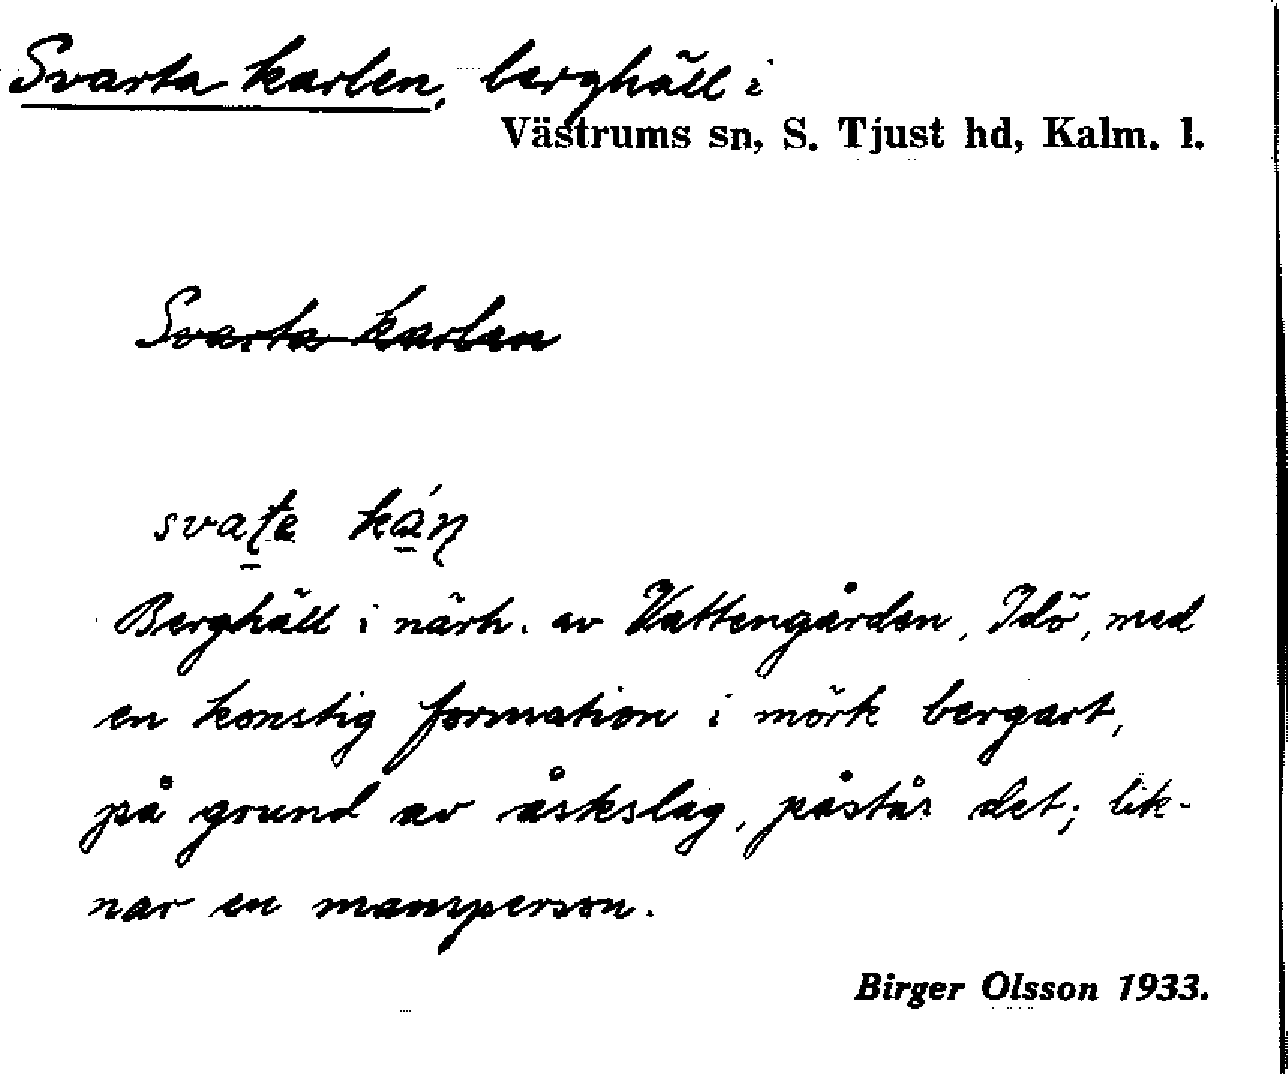 Svarta karlen, berghäll i
Västrums sn, S. Tjust hd, Kalm. l.
Svarta karlen
svaʈe ká̱ɳ
Berghäll i närh. av Vattengården, Idö, med
en konstig formation i mörk bergart,
på grund av åskslag, påstås det; lik-
nar en mansperson.
Birger Olsson 1933.